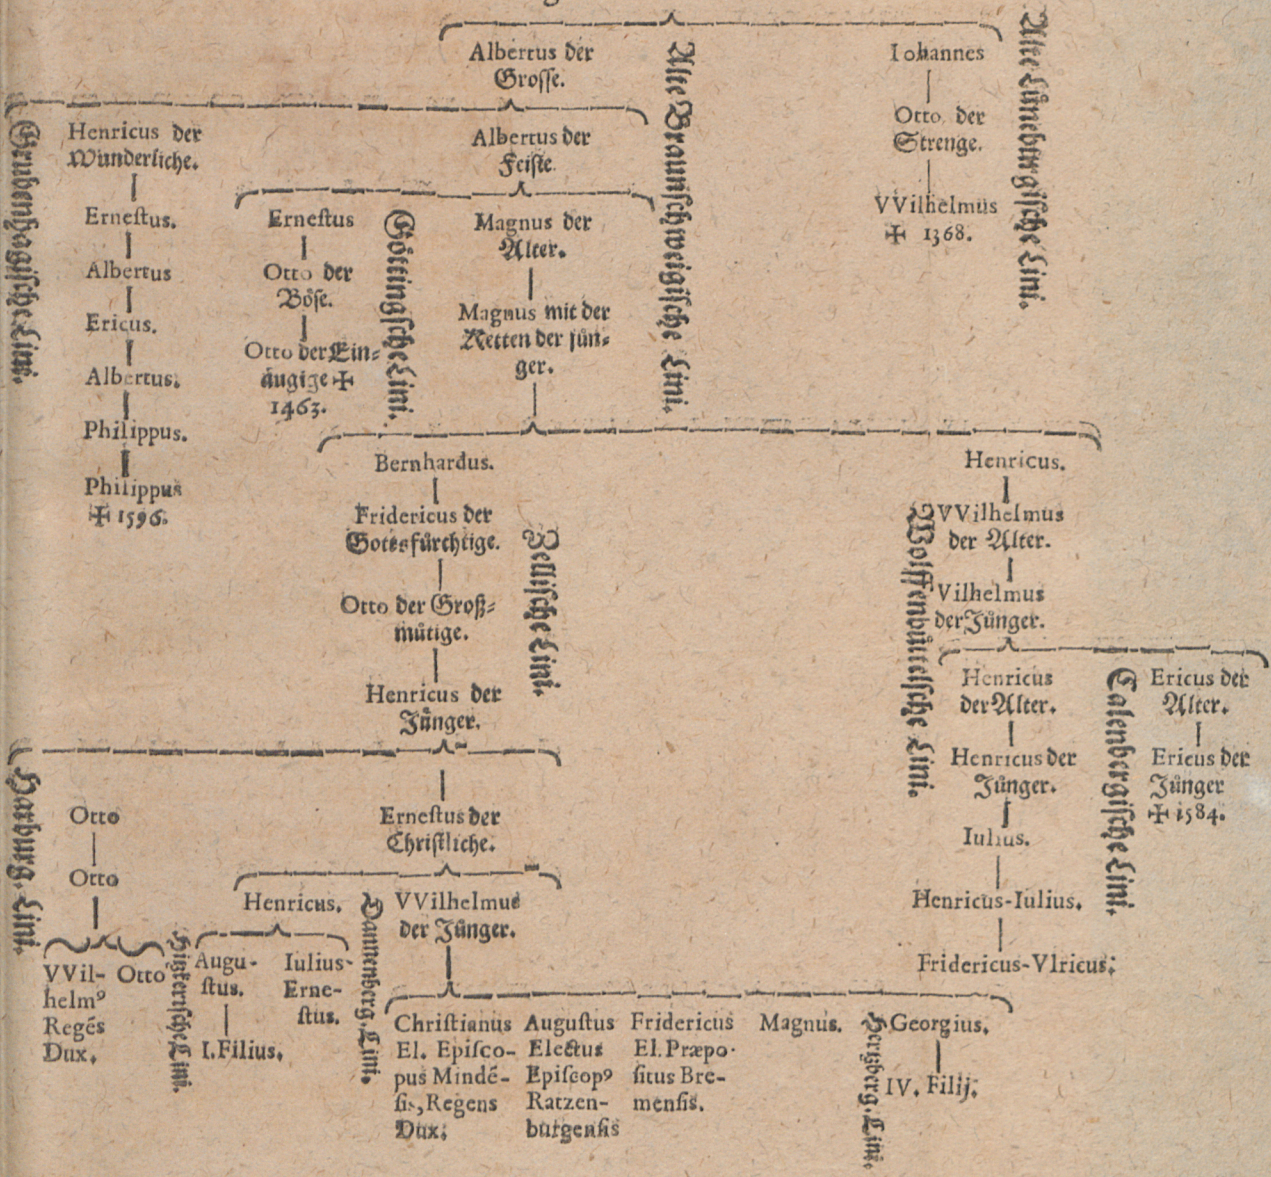 Albertus der
Grosse.
Alte Braunschweigische Lini.
Iohannes
Otto der
Strenge.
VVilhelmus
✠ 1368.
Alte Lüneburgische Lini.
Grubenhagische Lini.
Henricus der
Wunderliche.
Ernestus.
Albertus
Ericus.
Albertus.
Philippus.
Philippus
✠ 1596.
Albertus der
Feiste.
Ernestus
Otto der
Böse.
Otto der Ein⸗
äugige ✠
1463.
Göttingsche Lini.
Magnus der
Alter.
Magnus mit der
Ketten der jün⸗
ger.
Bernhardus.
Fridericus der
Gottsfürchtige.
Otto der Groß⸗
mütige.
Henricus der
Jünger.
Zellische Lini.
Henricus.
VVilhelmus
der Alter.
Vilhelmus
der Jünger.
Wolffenbüttelsche Lini.
Henricus
der Alter.
Henricus der
Jünger.
Iulius.
Henricus-Iulius.
Fridericus-Vlricus.
Calenbergische Lini.
Ericus der
Alter.
Ericus der
Jünger
✠ 1584.
Harburg. Lini.
Otto
Otto
VVil-
helmꝰ
Regēs
Dux.
Otto
Ernestus der
Christliche.
Henricus.
Augu-
stus.
I. Filius.
Iulius-
Erne-
stus.
Dannenberg. Lini.
VVilhelmus
der Jünger.
Christianus
El. Episco-
pus Mindē-
sis, Regens
Dux.
Augustus
Electus
Episcopꝰ
Ratzen-
burgensis
Fridericus
El. Præpo-
situs Bre-
mensis.
Magnus.
Georgius.
IV. Filij.